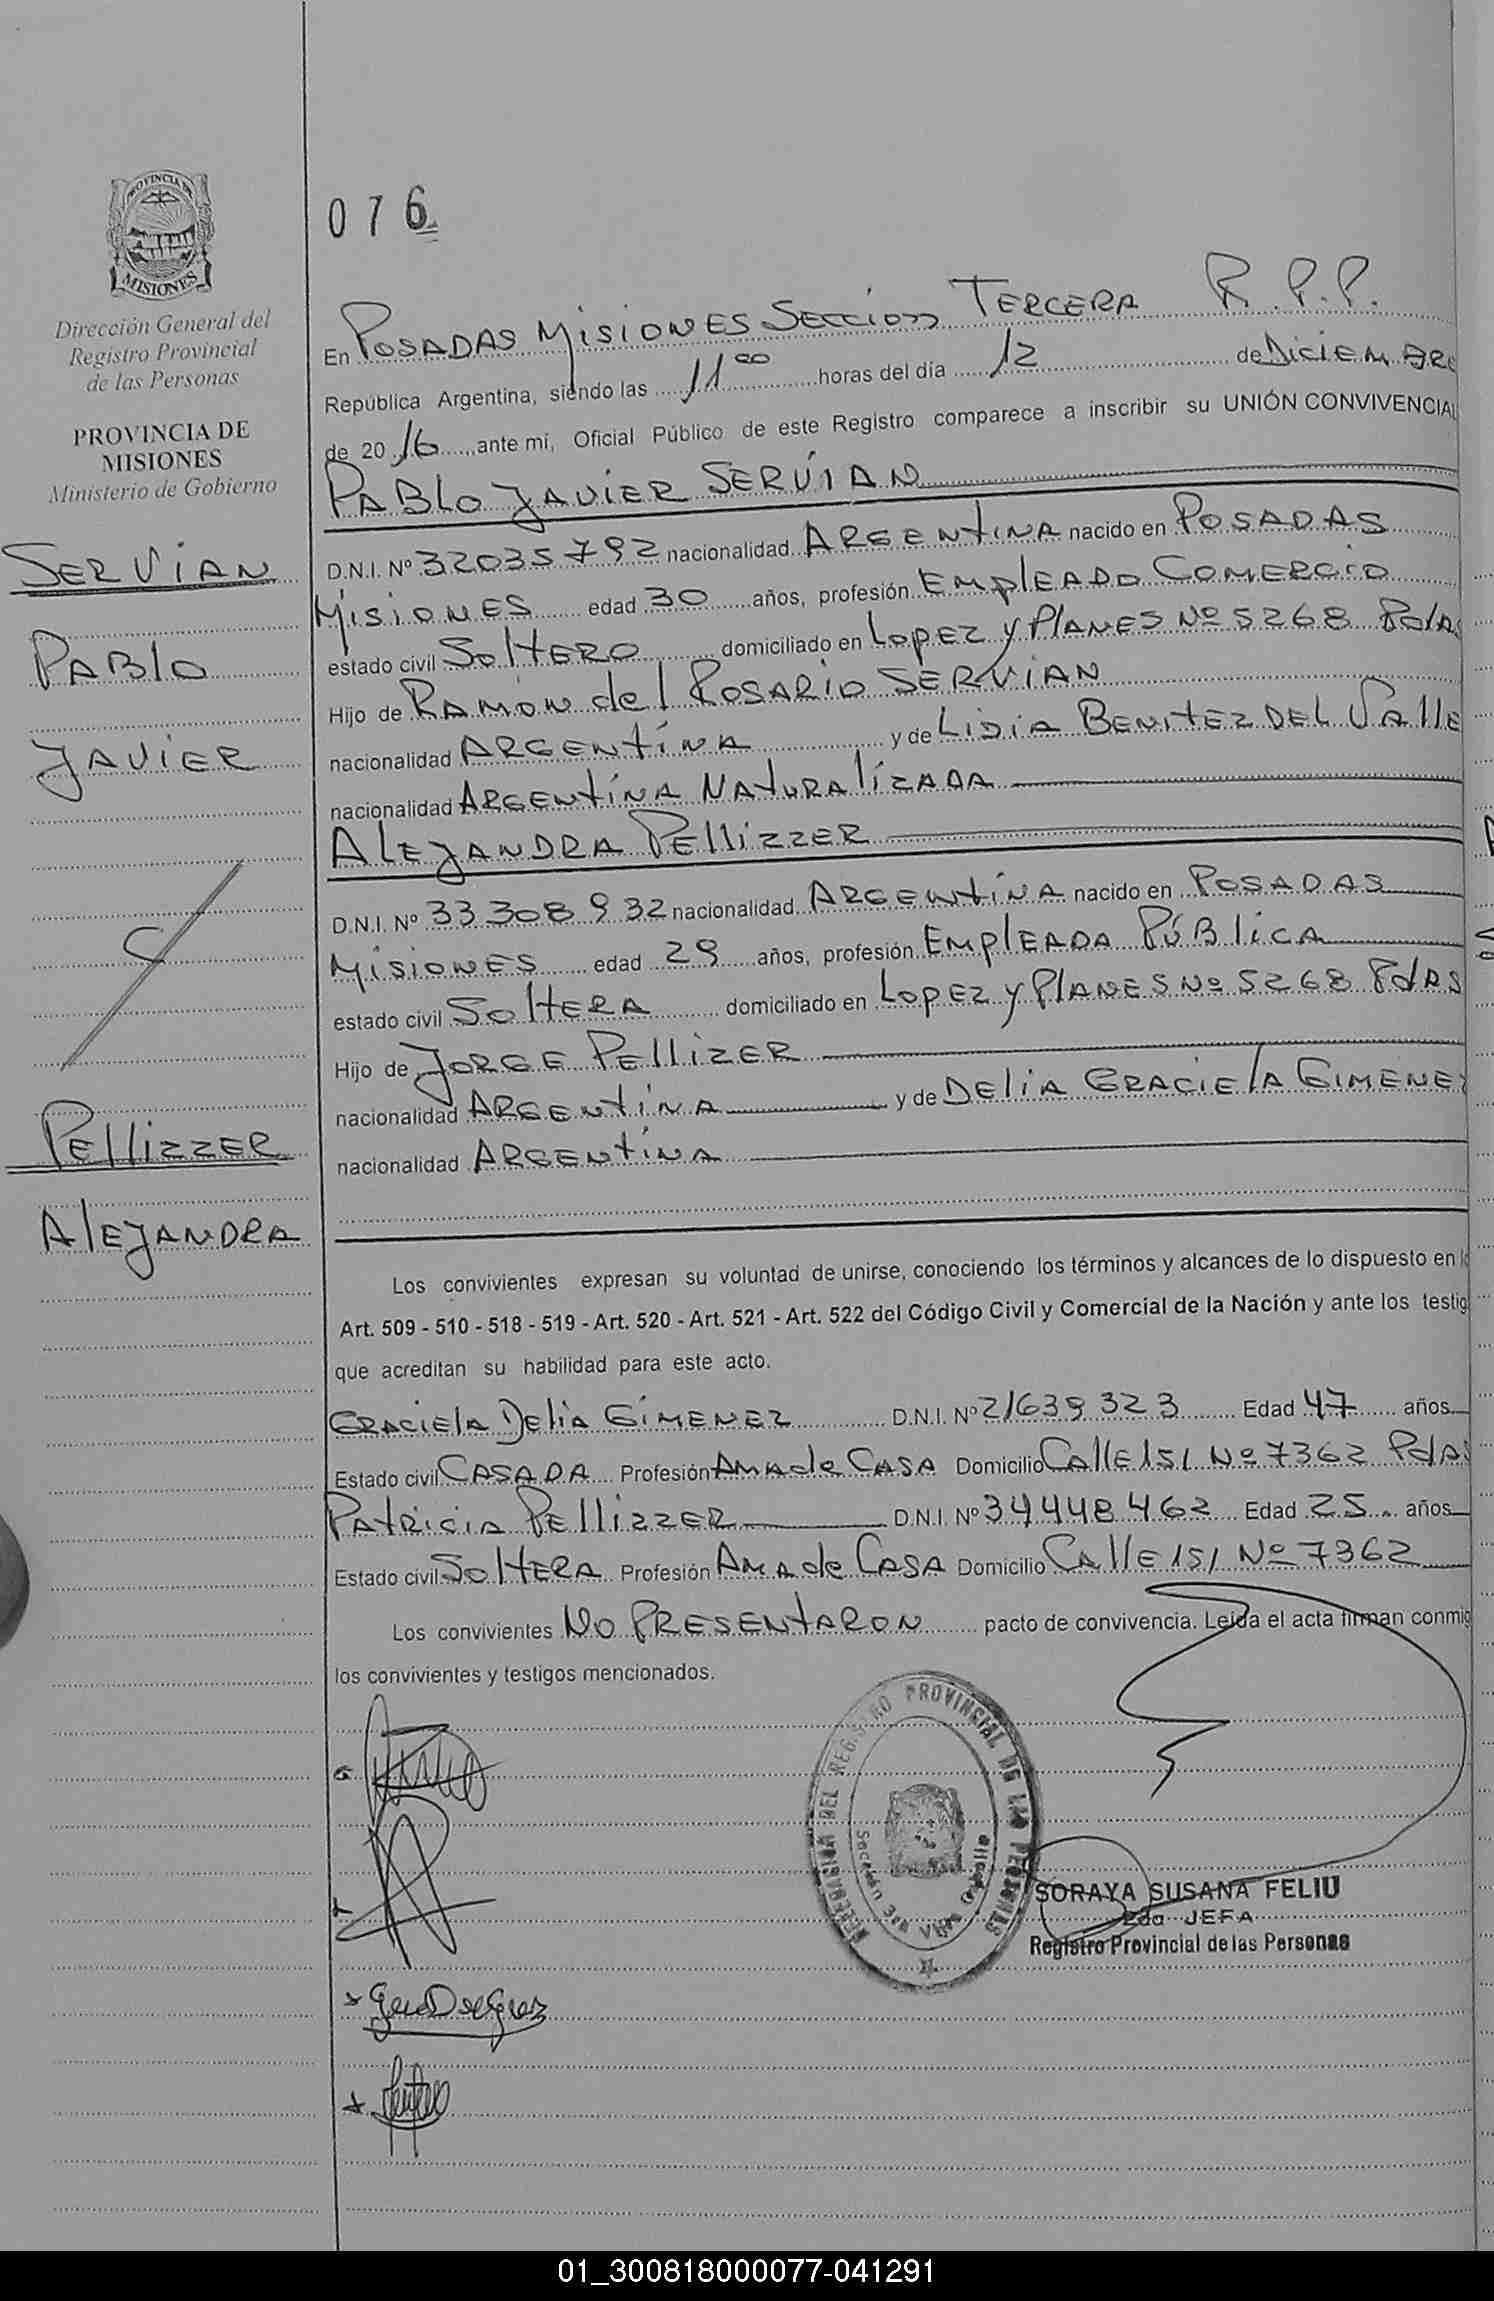 PROVINCIA DE
MISIONES
Dirección General del
Registro Provincial
de las Personas
PROVINCIA DE
MISIONES
Ministerio de Gobierno
SERVIAN
PABlO
JAVIER
PEllIZZER
AlEJANDRA
076
En POSADAS MISIONES SECCION TERCERA R.P.P.
República Argentina, siendo las 11 00 horas del día 12 de DICIEMBRE
de 20 16 ante mí, Oficial Público de este Registro comparece a inscribir su UNIÓN CONVIVENCIAL
PABLO JAVIER SERVIAN
D.N.I. Nº 32035792 nacionalidad ARGENTINA nacido en POSADAS
MISIONES edad 30 años, profesión EMPLEADO COMERCIO
estado civil SOLTERO domiciliado en LOPEZ y PLANES Nº 5268 PdAS
Hijo de RAMÓN del ROSARIO SERVIAN
nacionalidad ARGENTINA y de LIDIA BENITEZ DEL VALLE
nacionalidad ARGENTINA NATURALIZADA
ALEJANDRA PELLIZZER
D.N.I. Nº 33308932 nacionalidad ARGENTINA nacido en POSADAS
MISIONES edad 29 años, profesión EMPLEADA PÚBLICA
estado civil SOLTERA domiciliado en LOPEZ y PLANES Nº 5268 PdAS
Hijo de JORGE PELLIZER
nacionalidad ARGENTINA y de DELIA GRACIELA GIMENEZ
nacionalidad ARGENTINA
Los convivientes expresan su voluntad de unirse, conociendo los términos y alcances de lo dispuesto en lo
Art. 509 - 510 - 518 - 519 - Art. 520 - Art. 521 - Art. 522 del Código Civil y Comercial de la Nación y ante los testig
que acreditan su habilidad para este acto.
GRACIELA DELIA GIMENEZ D.N.I. Nº 21639323 Edad 47 años
Estado civil CASADA Profesión AMA de CASA Domicilio CALLE 151 Nº 7362 PdAS
PATRICIA PELLIZZER D.N.I. Nº 34448462 Edad 25 años
Estado civil SOLTERA Profesión AMA de CASA Domicilio CALLE 151 Nº 7362
Los convivientes NO PRESENTARON pacto de convivencia. Leída el acta firman conmig
los convivientes y testigos mencionados.
DELEGACION DEL REGISTRO PROVINCIAL DE LAS PERSONAS
Sección 3ra Villa Cabello
SORAYA SUSANA FELIU
2da JEFA
Registro Provincial de las Personas
01_300818000077-041291